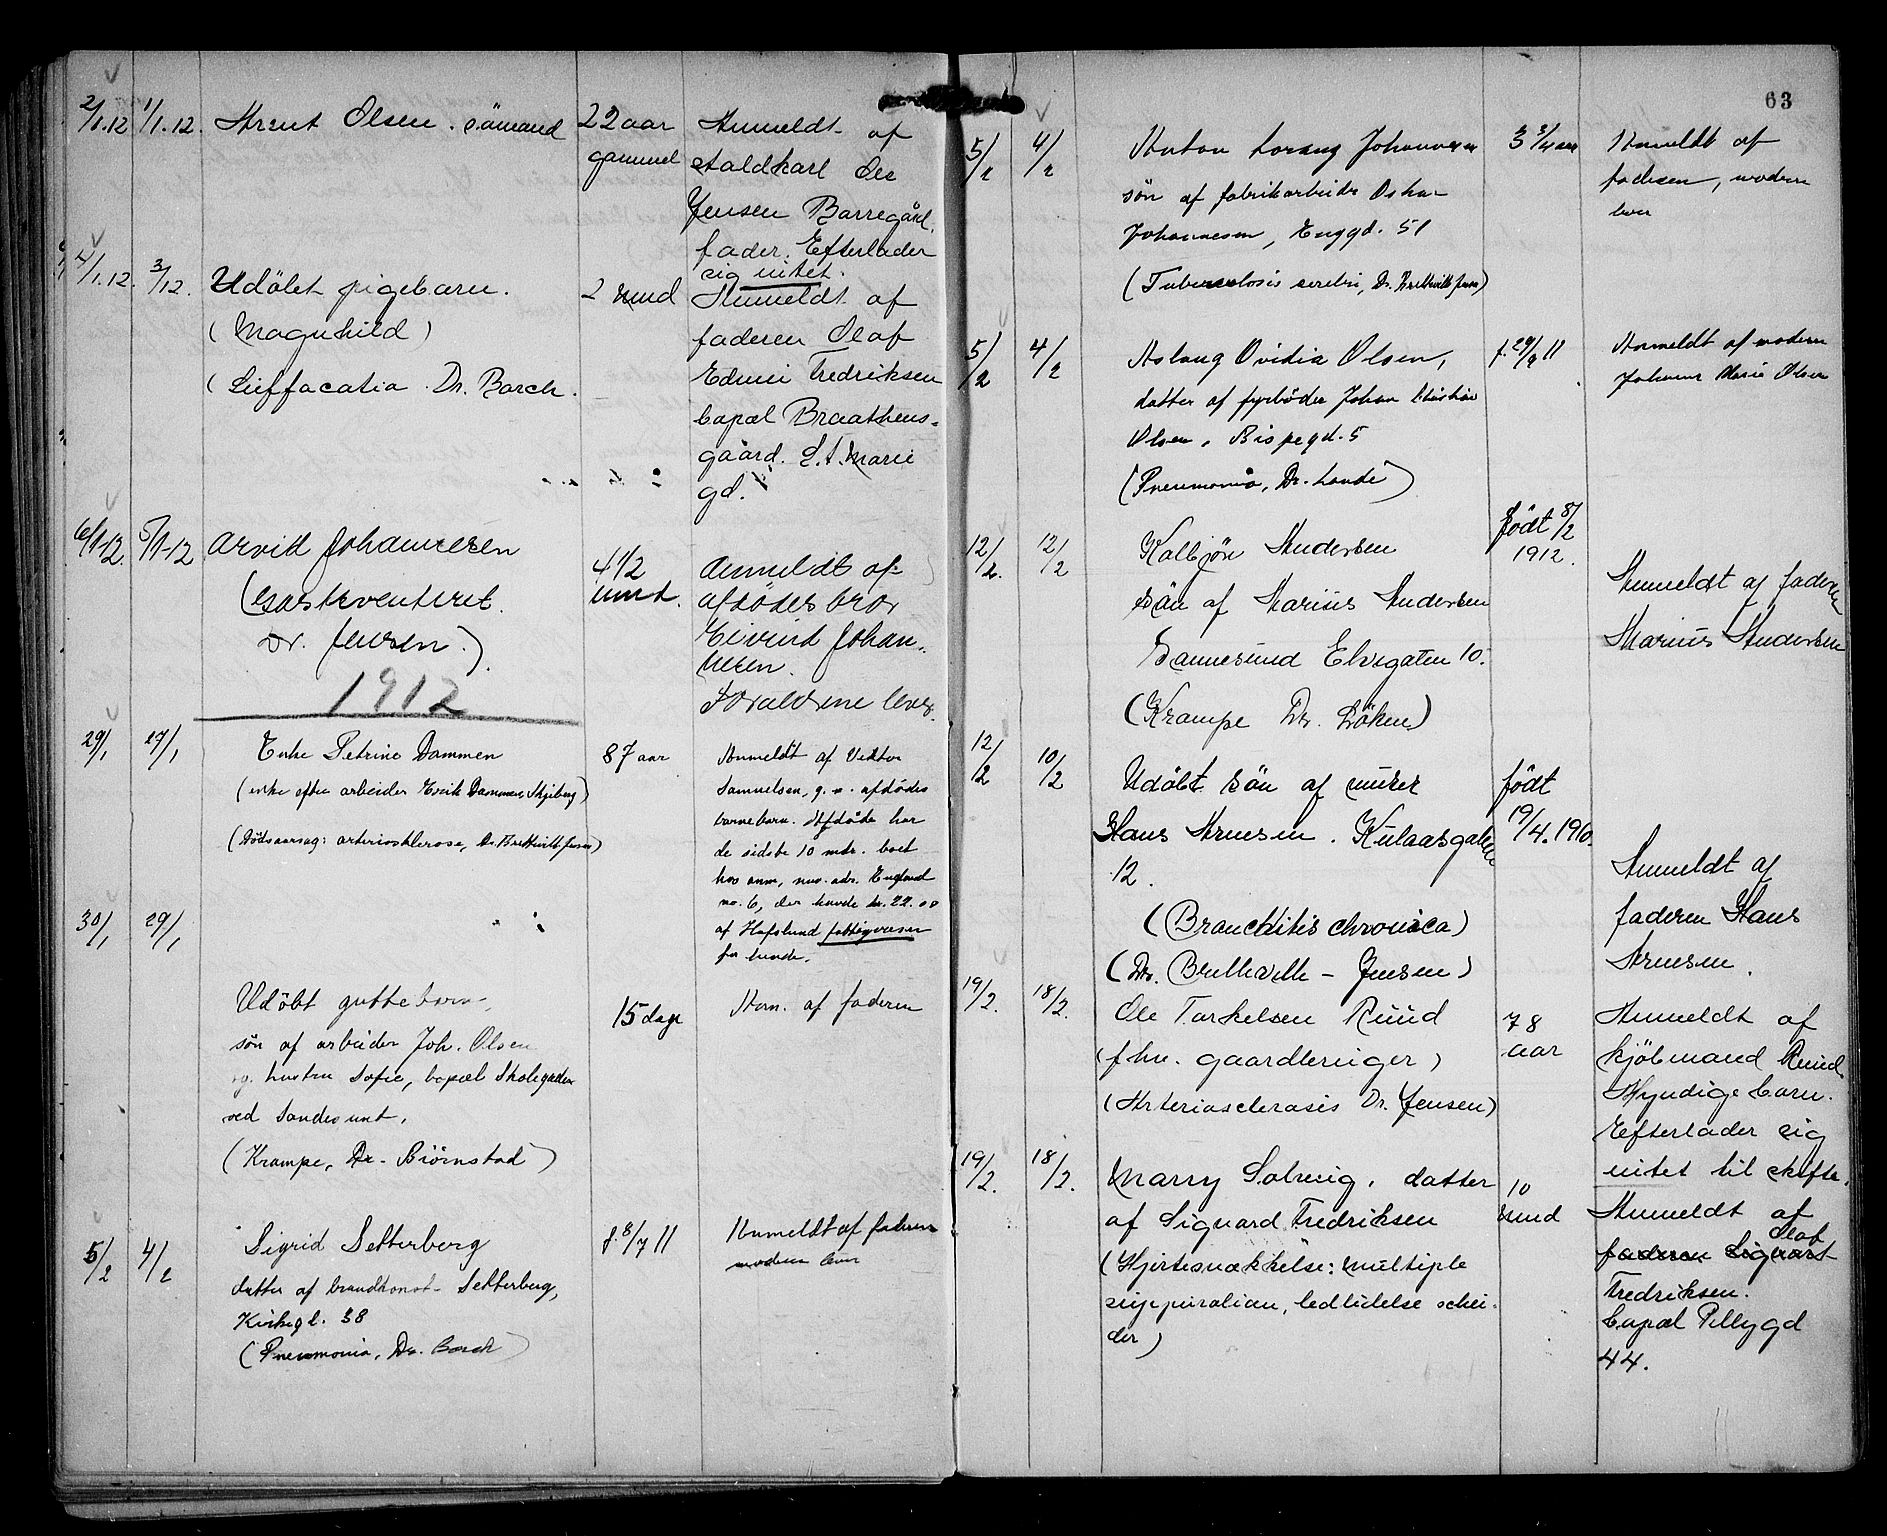 2/1.12 1/1.12. Arent Olsen. sömand 22 aar
gammel
Anmeldt af
staldkarl Ole
Jensen Borregård.
fader. Efterlader
sig intet.
4/1.12. 3/12. Udöbt pigebarn. 2 mnd
(Magnhild)
(Suffocatia Dr. Borch.
Anmeldt af
faderen Olaf
Edvin Fredriksen
bopæl Braathens-
gaard. S.t. Marie
gd.
6/1-12. 5/1-12 Arvid Johannesen
(Gastroenterit.
Dr. Jensen.)
4 1/2
mnd.
Anmeldt af
afdödes bror
Eivind Johan-
nesen.
Foraldrene lever.
1912
29/1 27/1 Enke Petrine Dammen 87 aar
(enke efter arbeider Erik Dammen, Skjeberg)
(Dödsaarsag: arteriosklerose, Dr. Brettville Jensen)
Anmeldt af Viktor
Samuelsen, g. m. afdödes
barnebarn. Afdöde har
de sidste 10 mdr. boet
hos anm, nuv. adr. England
no. 6, der havde kr. 22.00
af Hafslund fattigvæsen
for hende.
30/1 29/1
Udöbt guttebarn, 15 dage
sön af arbeider Joh. Olsen
og hustru Sofie, bopæl Skolegaden
ved Sandesund.
(Krampe, Dr. Björnstad)
Anm. af faderen
5/2 4/2 Sigrid Setterberg f. 8/7 11
datter af brandkonst. Setterberg,
Kirkegt. 38
(Pneumonia, Dr. Borch)
Anmeldt af faderen
moderen lever
63
5/2 4/2 Anton Johannesen 3 3/4 aar
sön af fabrikarbeider Oskar
Johannesen, Enggd. 51
(Tuberculosis cerebri, Dr. Brettville Jensen)
Anmeldt af
faderen, moderen
lever
5/2 4/2 Aslaug Ovidia Olsen, f. 29/9 11
datter af fyrböder Johan Christian
Olsen, Bispegd. 5
(Pneumonia, Dr. Lande)
Anmeldt af moderen
Johanne Marie Olsen
12/2. 12/2 Kolbjön Andersen
sön af Marius Andersen
Sannesund Elvegaten 10.
(Krampe Dr. Löken)
födt 8/2
1912.
Anmeldt af faderen
Marius Andersen
12/2 10/2 Udöbt sön af murer
Hans Arnesen. Kulaasgaten
12.
(Bronchitis chronica)
(Dr. Brettville - Jensen)
födt
19/4.1910.
Anmeldt af
faderen Hans
Arnesen.
19/2. 18/2. Ole Torkelsen Ruud
(fhv. gaardbruger)
(Arteriosclerosis Dr. Jensen)
78
aar
Anmeldt af
kjöbmand Ruud.
Myndige barn.
Efterlader sig
intet til skifte.
19/2. 18/2. Marry Solveig, datter
af Siguard Fredriksen
(Hjertesvækkelse: multiple
suppuration, ledlidelse schei-
der)
10
mnd
Anmeldt af
Olaf
faderen Siguart
Fredriksen.
bopæl Pellygd
44.